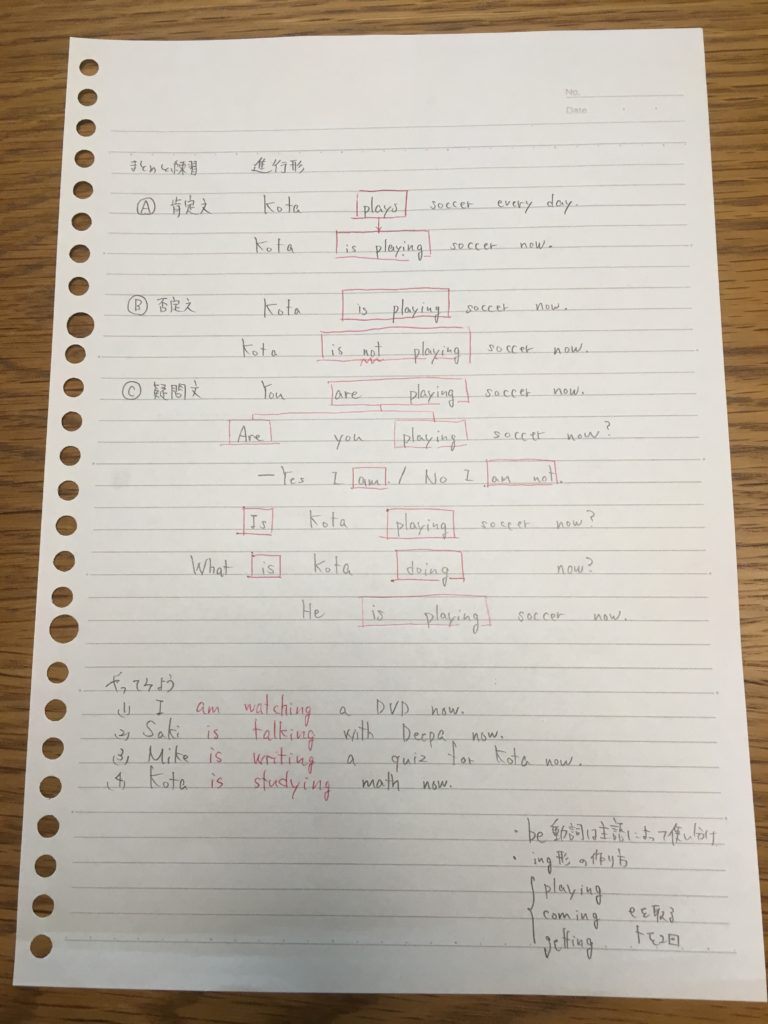 No.
Date
まとめと練習 進行形
Ⓐ 肯定文 Kota plays soccer every day.
Kota is playing soccer now.
Ⓑ 否定文 Kota is playing soccer now.
Kota is not playing soccer now.
Ⓒ 疑問文 You are playing soccer now.
Are you playing soccer now?
—Yes I am. / No I am not.
Is Kota playing soccer now?
What is Kota doing now?
He is playing soccer now.
やってみよう
(1) I am watching a DVD now.
(2) Saki is talking with Deepa now.
(3) Mike is writing a quiz for Kota now.
(4) Kota is studying math now.
・be動詞は主語によって使い分け
・ing形の作り方
playing
coming eを取る
getting tを2回